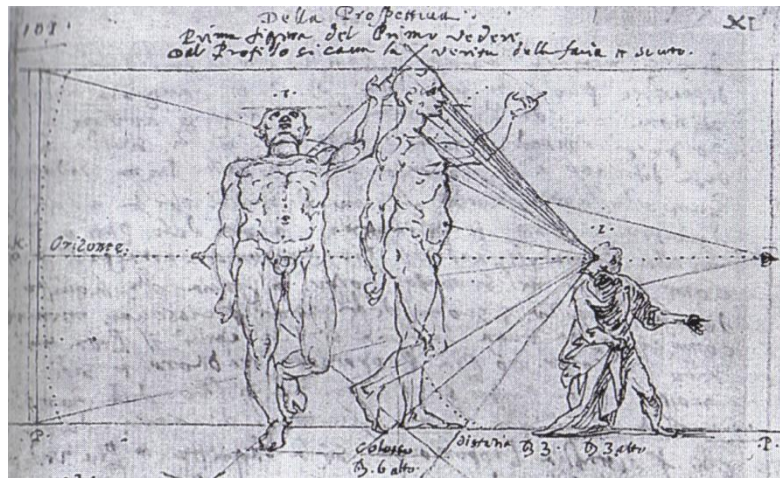 Della Prospettiva.
101.
XI
Prima figura del Primo vedere
Dal Profilo si cava la verita della facia in scurto.
.1.
.2.
Orizonte:
P
P.
Colosso
6 alto.
distantia
3.
3 alto
.P.